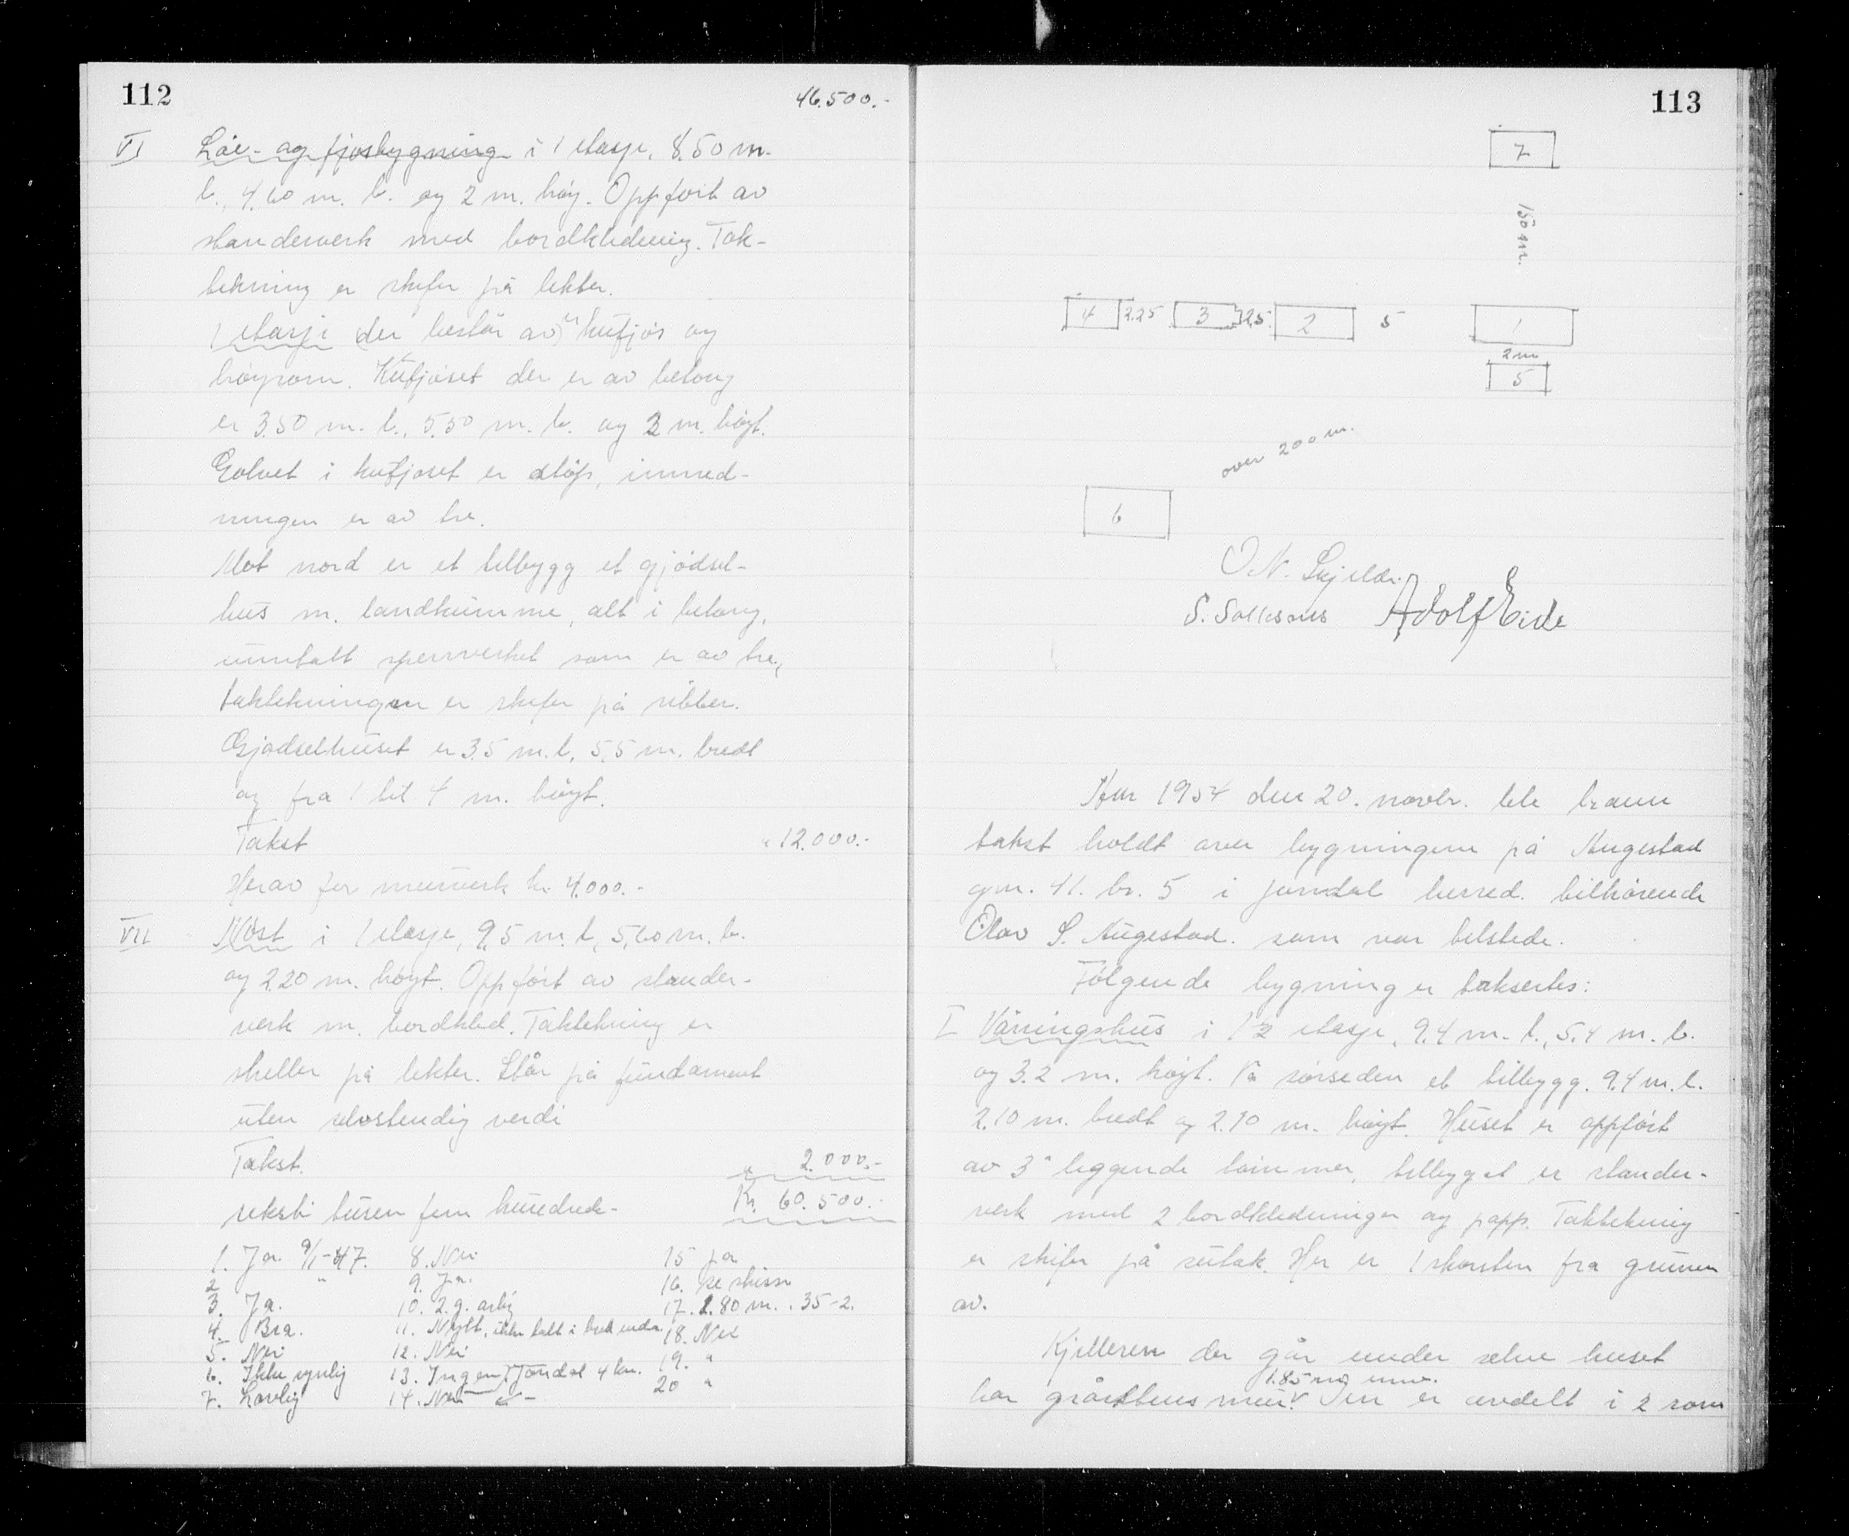 112
46.500.-
VI Løe- og fjosbygning i 1 etasje, 8.50 m.
l., 4.60 m. b. og 2 m. høy. Oppført av
standerverk med bordkledning. Tak-
tekning er skifer på lekter.
1 etasje der består av kufjøs og
høyrom. Kufjøset der er av betong
er 3.50 m. l., 5.50 m. b. og 2 m. høgt.
Golvet i kufjøset er støp, innred-
ningen er av tre.
Mot nord er et tilbygg et gjødsel-
hus m. landkumme, alt i betong,
unntatt sperrverket som er av tre,
taktekningen er skifer på ribber.
Gjødselhuset er 3.5 m. l. 5.5 m. bredt
og fra 1 til 4 m. høgt.
Takst " 12.000.-
Herav for murverk kr 4.000.-
VII Nøst i 1 etasje, 9,5 m. l., 5,60 m. b.
og 2.20 m. høgt. Oppført av stander-
verk m. bordkled. Taktekning er
skeller på lekter. Står på fundament
uten selvstendig verdi
Takst. " 2.000.-
seksti tusen fem hundrede- Kr. 60.500.-
1. Ja 9/1-47. 8. Nei 15 ja
2 " 9. Ja. 16. se skisse
3. Ja. 10. 2.g. årlig 17. 2.80 m. . 35-2.
4. Bra. 11. Nytt, ikke tatt i bruk enda. 18. Nei
5. Nei 12. Nei 19. "
6. Ikke synlig 13. Ingen) Jondal 4 km. 20 "
7. Lovlig 14. Nei
113
7
150 m.
4 2.25 3 2.5 2 5 1
2 m
5
over 200 m.
6
O. N. Skjelde.
S. Sollesnes Adolf Eide
Año 1954 den 20. novbr. ble brann
takst holdt over bygningene på Augestad
gnr. 41. br. 5 i Jondal herred. tilhørende
Olav S. Augestad. som var tilstede.
Følgende bygninger taksertes:
I Våningshus i 1½ etasje, 9.4 m. l., 5.4 m. b.
og 3.2 m. høgt. På sørsiden et tilbygg. 9.4 m. l.
2.10 m. bredt og 2.10 m. høgt. Huset er oppført
av 3" liggende tømmer, tilbygget er stander-
verk med 2 bordkledninger og papp. Taktekning
er skifer på sutak. Her er 1 skorsten fra grunnen
av.
Kjelleren der går under selve huset
1.85 m. innv.
har gråsteinsmur. Den er avdelt i 2 rom